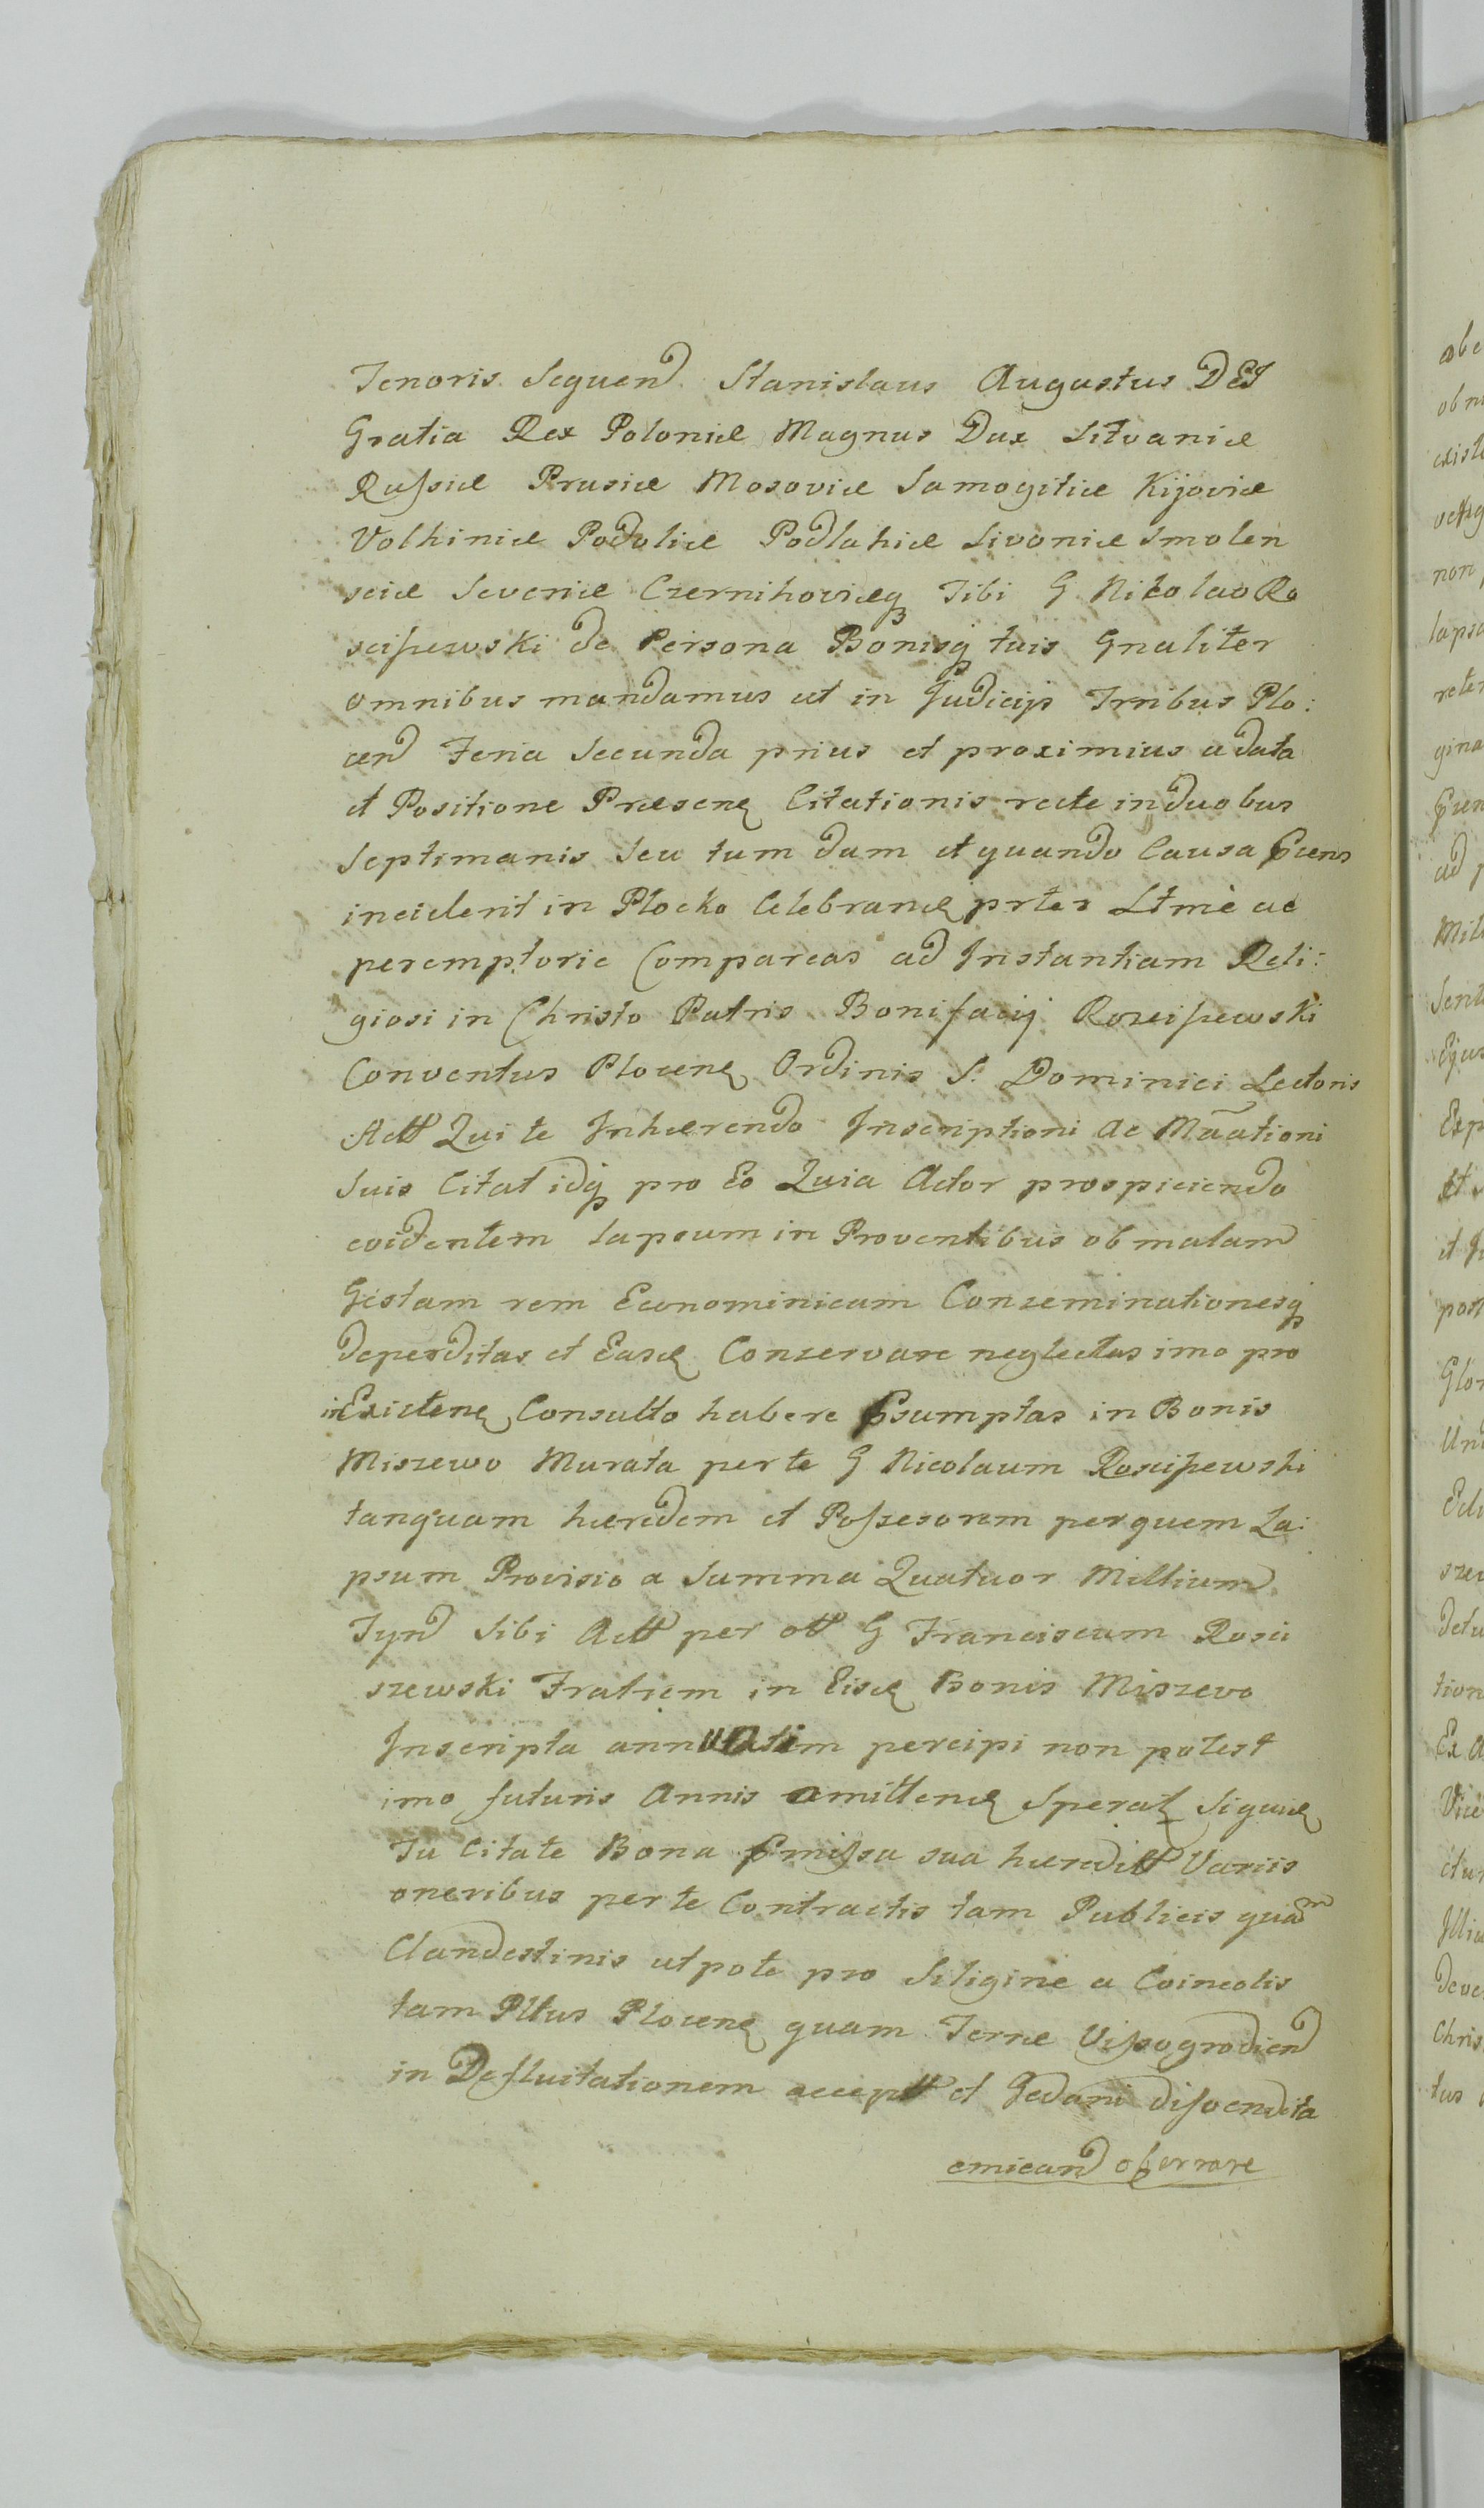 Tenoris Sequend Stanislaus Augustus DEI
Gratia Rex Poloniæ Magnus Dux Litvaniæ
Russiæ Prusiæ Mosoviæ Samogitiæ Kijoviæ
Volhiniæ Podoliæ Podlahiæ Livoniæ Smolen
sciæ Seveniæ Czernihoviæq Tibi G Nicolao Ro
sciszewski de Persona Bonisq tuis Gnaliter
omnibus mandamus ut in Judicijs Trribus Plo:
cen Feria Secunda prius et proximius a data
et Positione Præsen Citationis recte in duobus
Septimanis seu tum dum et quando Causa Præns
inciderit in Plocko Celebran prter Ltmè ac
peremptorie Compareas ad Instantiam Reli:
giosi in Christo Patris Bonifacij Rosciszewski
Conventus Plocen Ordinis S: Dominici Lectoris
Actt Qui te Inhærendo Inscriptioni ac Mũationi
Suis Citat idq pro Eo Quia Actor prospiciendo
evidentem lapsum in Proventibus ob malam
Gestam rem Econominicam Conseminationesq
deperditas et Easd Conservare neglectas imo pro
in Existen Consulto habere Præsumptas in Bonis
Miszewo Murata per te G Nicolaum Rosciszewski
tanquam hæredem et Possesorem per quem La:
psum Provisio a Summa Quatuor Millium
Tynf Sibi Actt per ott G Franciscum Rosci
szewski Fratrem in Eisd Bonis Miszevo
Inscripta annuatim percipi non potest
imo futuris Annis amitten Sperat Siquid
Tu Citate Bona Præmissa sua hæreditt Variis
oneribus per te Contractis tam Publicis quam
Clandestinis utpote pro Siligine a Coincolis
tam Pltus Plocen quam Terræ Vissogrodien
in Defluitationem acceptt et Gedani disvendita